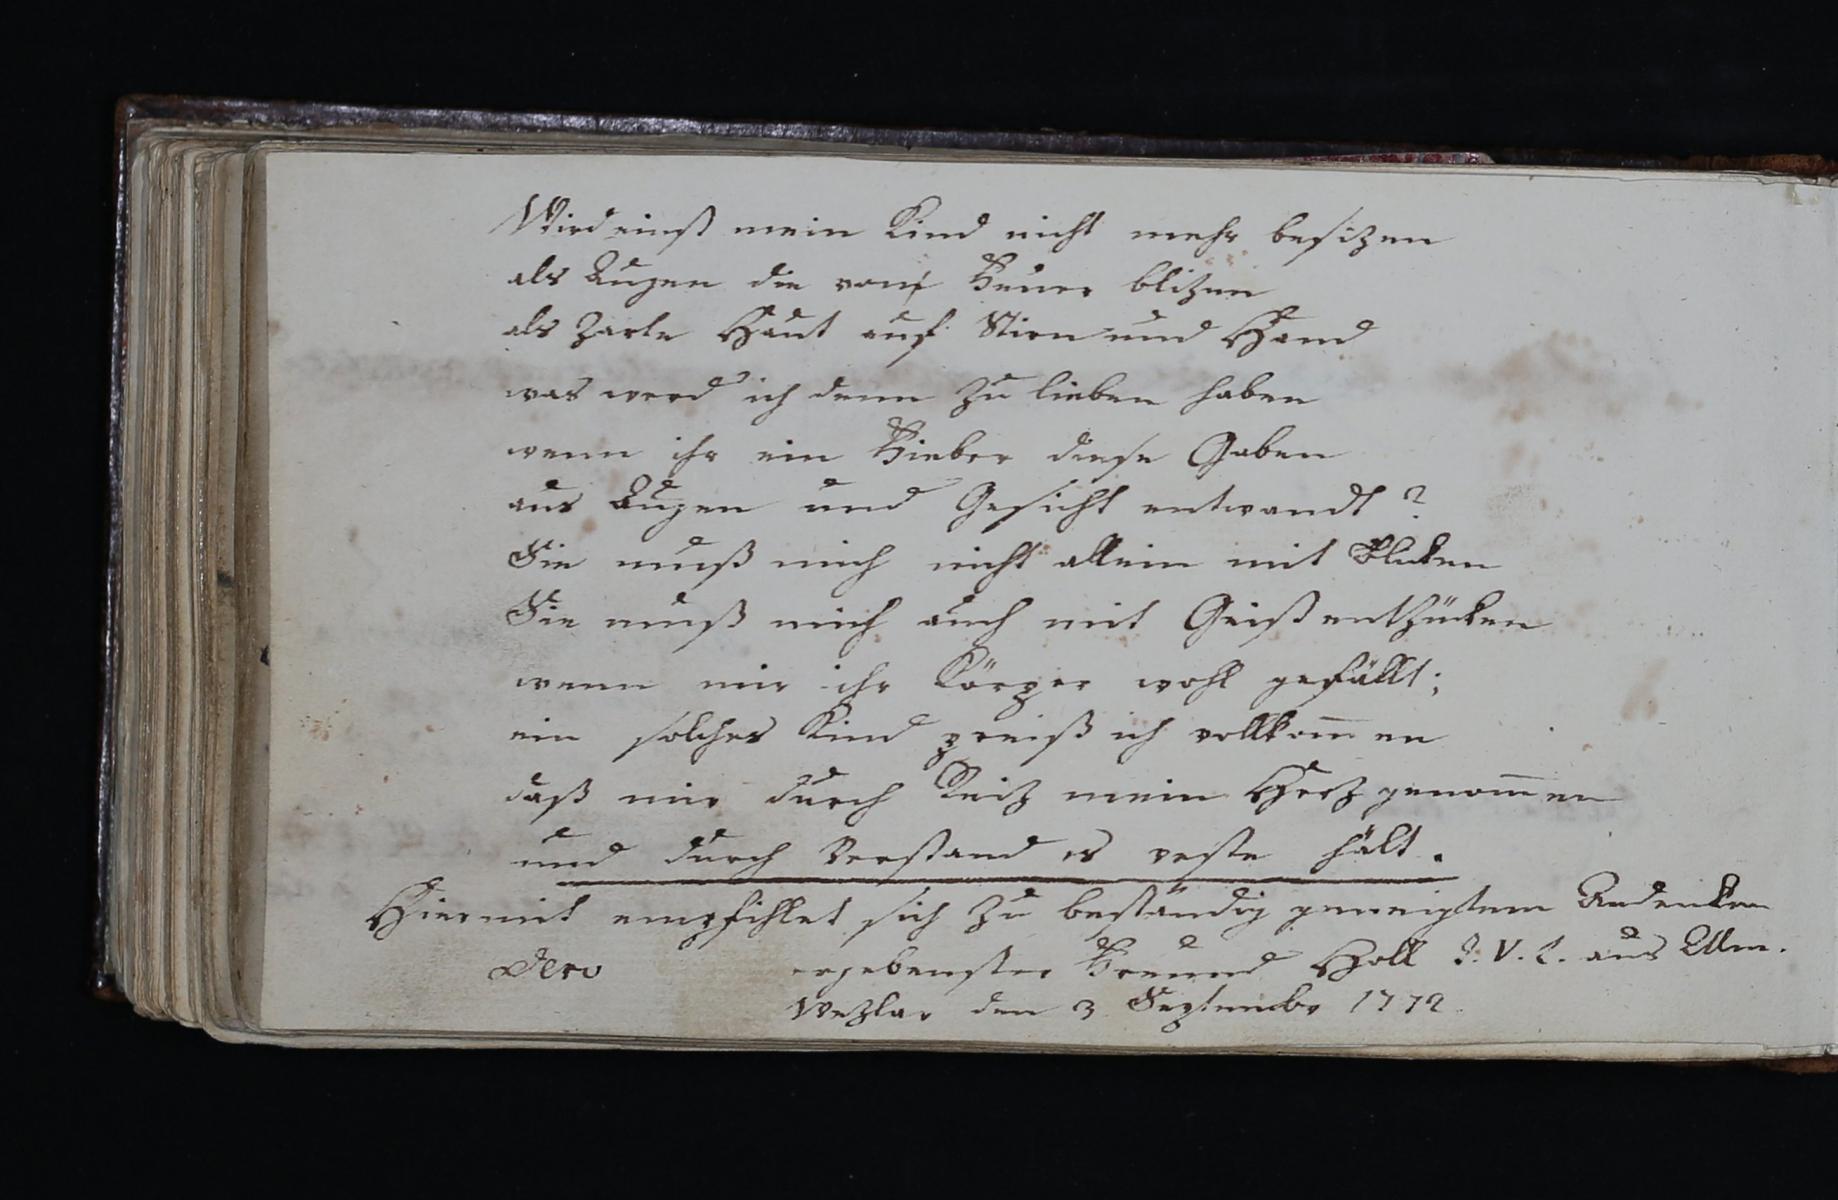 Wird einst mein Kind nicht mehr besizen
als Augen die vom Feuer blizen
als zarte Haut auf Stirn und Hand
was werd ich denn zu lieben haben
wenn ihr ein Fieber diese Gaben
aus Augen und Gesicht entwandt?
Sie muß mich nicht allein mit Bliken
Sie muß mich auch mit Geist entzücken
wenn mir ihr Körper wohl gefällt;
ein solches Kind preiß ich vollkom̅en
daß mir durch Reiz mein Herz genom̅en
und durch Verstand es veste hält.
Hiermit empfihlet sich zu beständig geneigtem Andenken
Dero ergebenster Freund Holl J. V. L. aus Ulm.
Wezlar den 3 Septembr 1772.